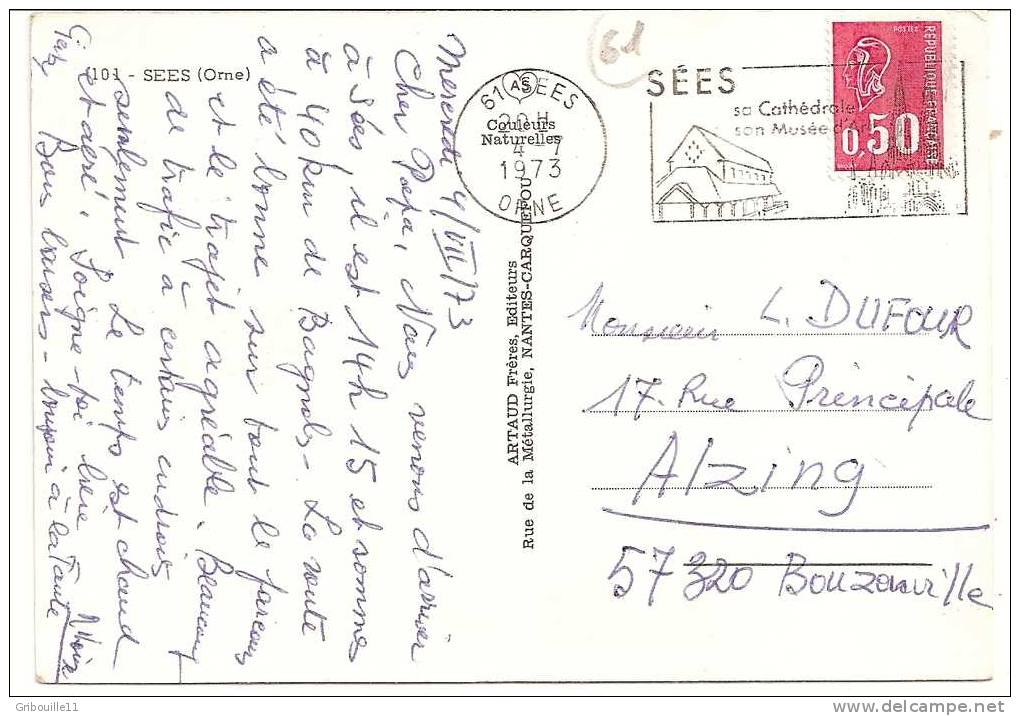 101 - SEES (Orne)
Mercredi 4/VII/73
Cher Papa, Nous venons d'arriver
à Sées, il est 14h15 et sommes
à 40 km de Bagnoles - La route
a été bonne sur tout le parcours
et le trajet agréable. Beaucoup
de trafic à certains endroits
seulement. Le temps est chaud
et aéré. Soigne-toi bien
Bons baisers - bonjour à la Tante
61 SEES
AS
20H
4 - 7
1973
ORNE
Couleurs
Naturelles
61
SÉES
sa Cathédrale
son Musée d'Art
POSTES
REPUBLIQUE FRANÇAISE
0,50
ARTAUD Frères, Editeurs
Rue de la Métallurgie, NANTES-CARQUEFOU
Monsieur L. DUFOUR
17 Rue Principale
Alzing
57320 Bouzonville
Gribouille11
delcampe.net